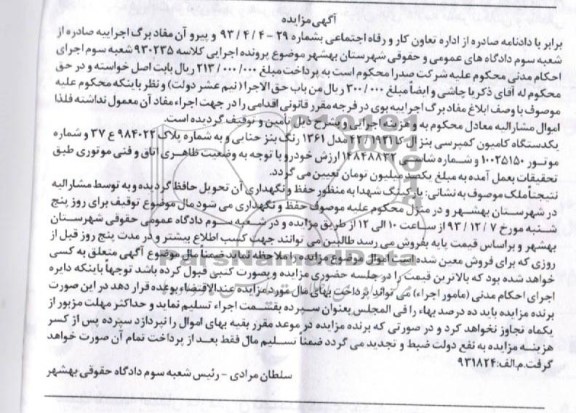 آگهی مزایده
برابر با دادنامه صادره از اداره تعاون کار و رفاه اجتماعی بشماره ۲۹ - ۹۳/۴/۴ و پیرو آن مفاد برگ اجراییه صادره از
شعبه سوم دادگاه های عمومی و حقوقی شهرستان بهشهر موضوع پرونده اجرایی کلاسه ۹۳۰۲۳۵ شعبه سوم اجرای
احکام مدنی محکوم علیه شرکت صدرا محکوم است به پرداخت مبلغ ۲۱۳/۰۰۰/۰۰۰ ریال بابت اصل خواسته و در حق
محکوم له آقای ذکریا چاشی و ایضاً مبلغ ۳۰۰/۰۰۰ ریال من باب حق الاجرا (نیم عشر دولت) و نظر باینکه محکوم علیه
موصوف با وصف ابلاغ مفاد برگ اجراییه بوی در فرجه مقرر قانونی اقدامی را در جهت اجراء مفاد آن معمول نداشته فلذا
اموال مشارالیه معادل محکوم به و هزینه اجرایی و بشرح ذیل تأمین و توقیف گردیده است.
یکدستگاه کامیون کمپرسی بنز ال کا ۱۹۲۴ مدل ۱۳۶۱ رنگ بنز حنایی و به شماره پلاک ۹۸۴۰۲۲ ع ۳۷ و شماره
موتور ۱۰۰۲۵۱۵۰ و شماره شاسی ۱۴۸۴۸۸۲۲ ارزش خودرو با توجه به وضعیت ظاهری اتاق و فنی موتوری طبق
تحقیقات بعمل آمده به مبلغ یکصد میلیون تومان تعیین می گردد.
نتیجتاً ملک موصوف به نشانی: پارکینگ شهدا به منظور حفظ و نگهداری آن تحویل حافظ گردیده و به توسط مشارالیه
در شهرستان بهشهر و در منزل محکوم علیه موصوف حفظ و نگهداری می شود مال موضوع توقیف برای روز پنج
شنبه مورخ ۹۳/۱۲/۷ از ساعت ۱۰ الی ۱۲ از طریق مزایده و در شعبه سوم دادگاه عمومی حقوقی شهرستان
بهشهر و براساس قیمت پایه بفروش می رسد طالبین می توانند جهت کسب اطلاع بیشتر و در مدت پنج روز قبل از
روزی که برای فروش معین شده است اموال موضوع مزایده را ملاحظه نماید ضمناً مال موضوع آگهی متعلق به کسی
خواهد شده بود که بالاترین قیمت را در جلسه حضوری مزایده و بصورت کتبی قبول کرده باشد توجهاً باینکه دایره
اجرای احکام مدنی (مامور اجراء) می تواند پرداخت بهای مال مورد مزایده عندالاقتضاء بوعده قرار دهد در این صورت
برنده مزایده باید ده درصد بهاء را فی المجلس بعنوان سپرده بقسمت اجراء تسلیم نماید و حداکثر مهلت مزبور از
یکماه تجاوز نخواهد کرد و در صورتی که برنده مزایده در موعد مقرر بقیه بهای اموال را نپردازد سپرده پس از کسر
هزینه مزایده به نفع دولت ضبط و تجدید می گردد ضمناً تسلیم مال فقط بعد از پرداخت تمام آن صورت خواهد
گرفت.م.الف: ۹۳۱۸۲۴
سلطان مرادی - رئیس شعبه سوم دادگاه حقوقی بهشهر